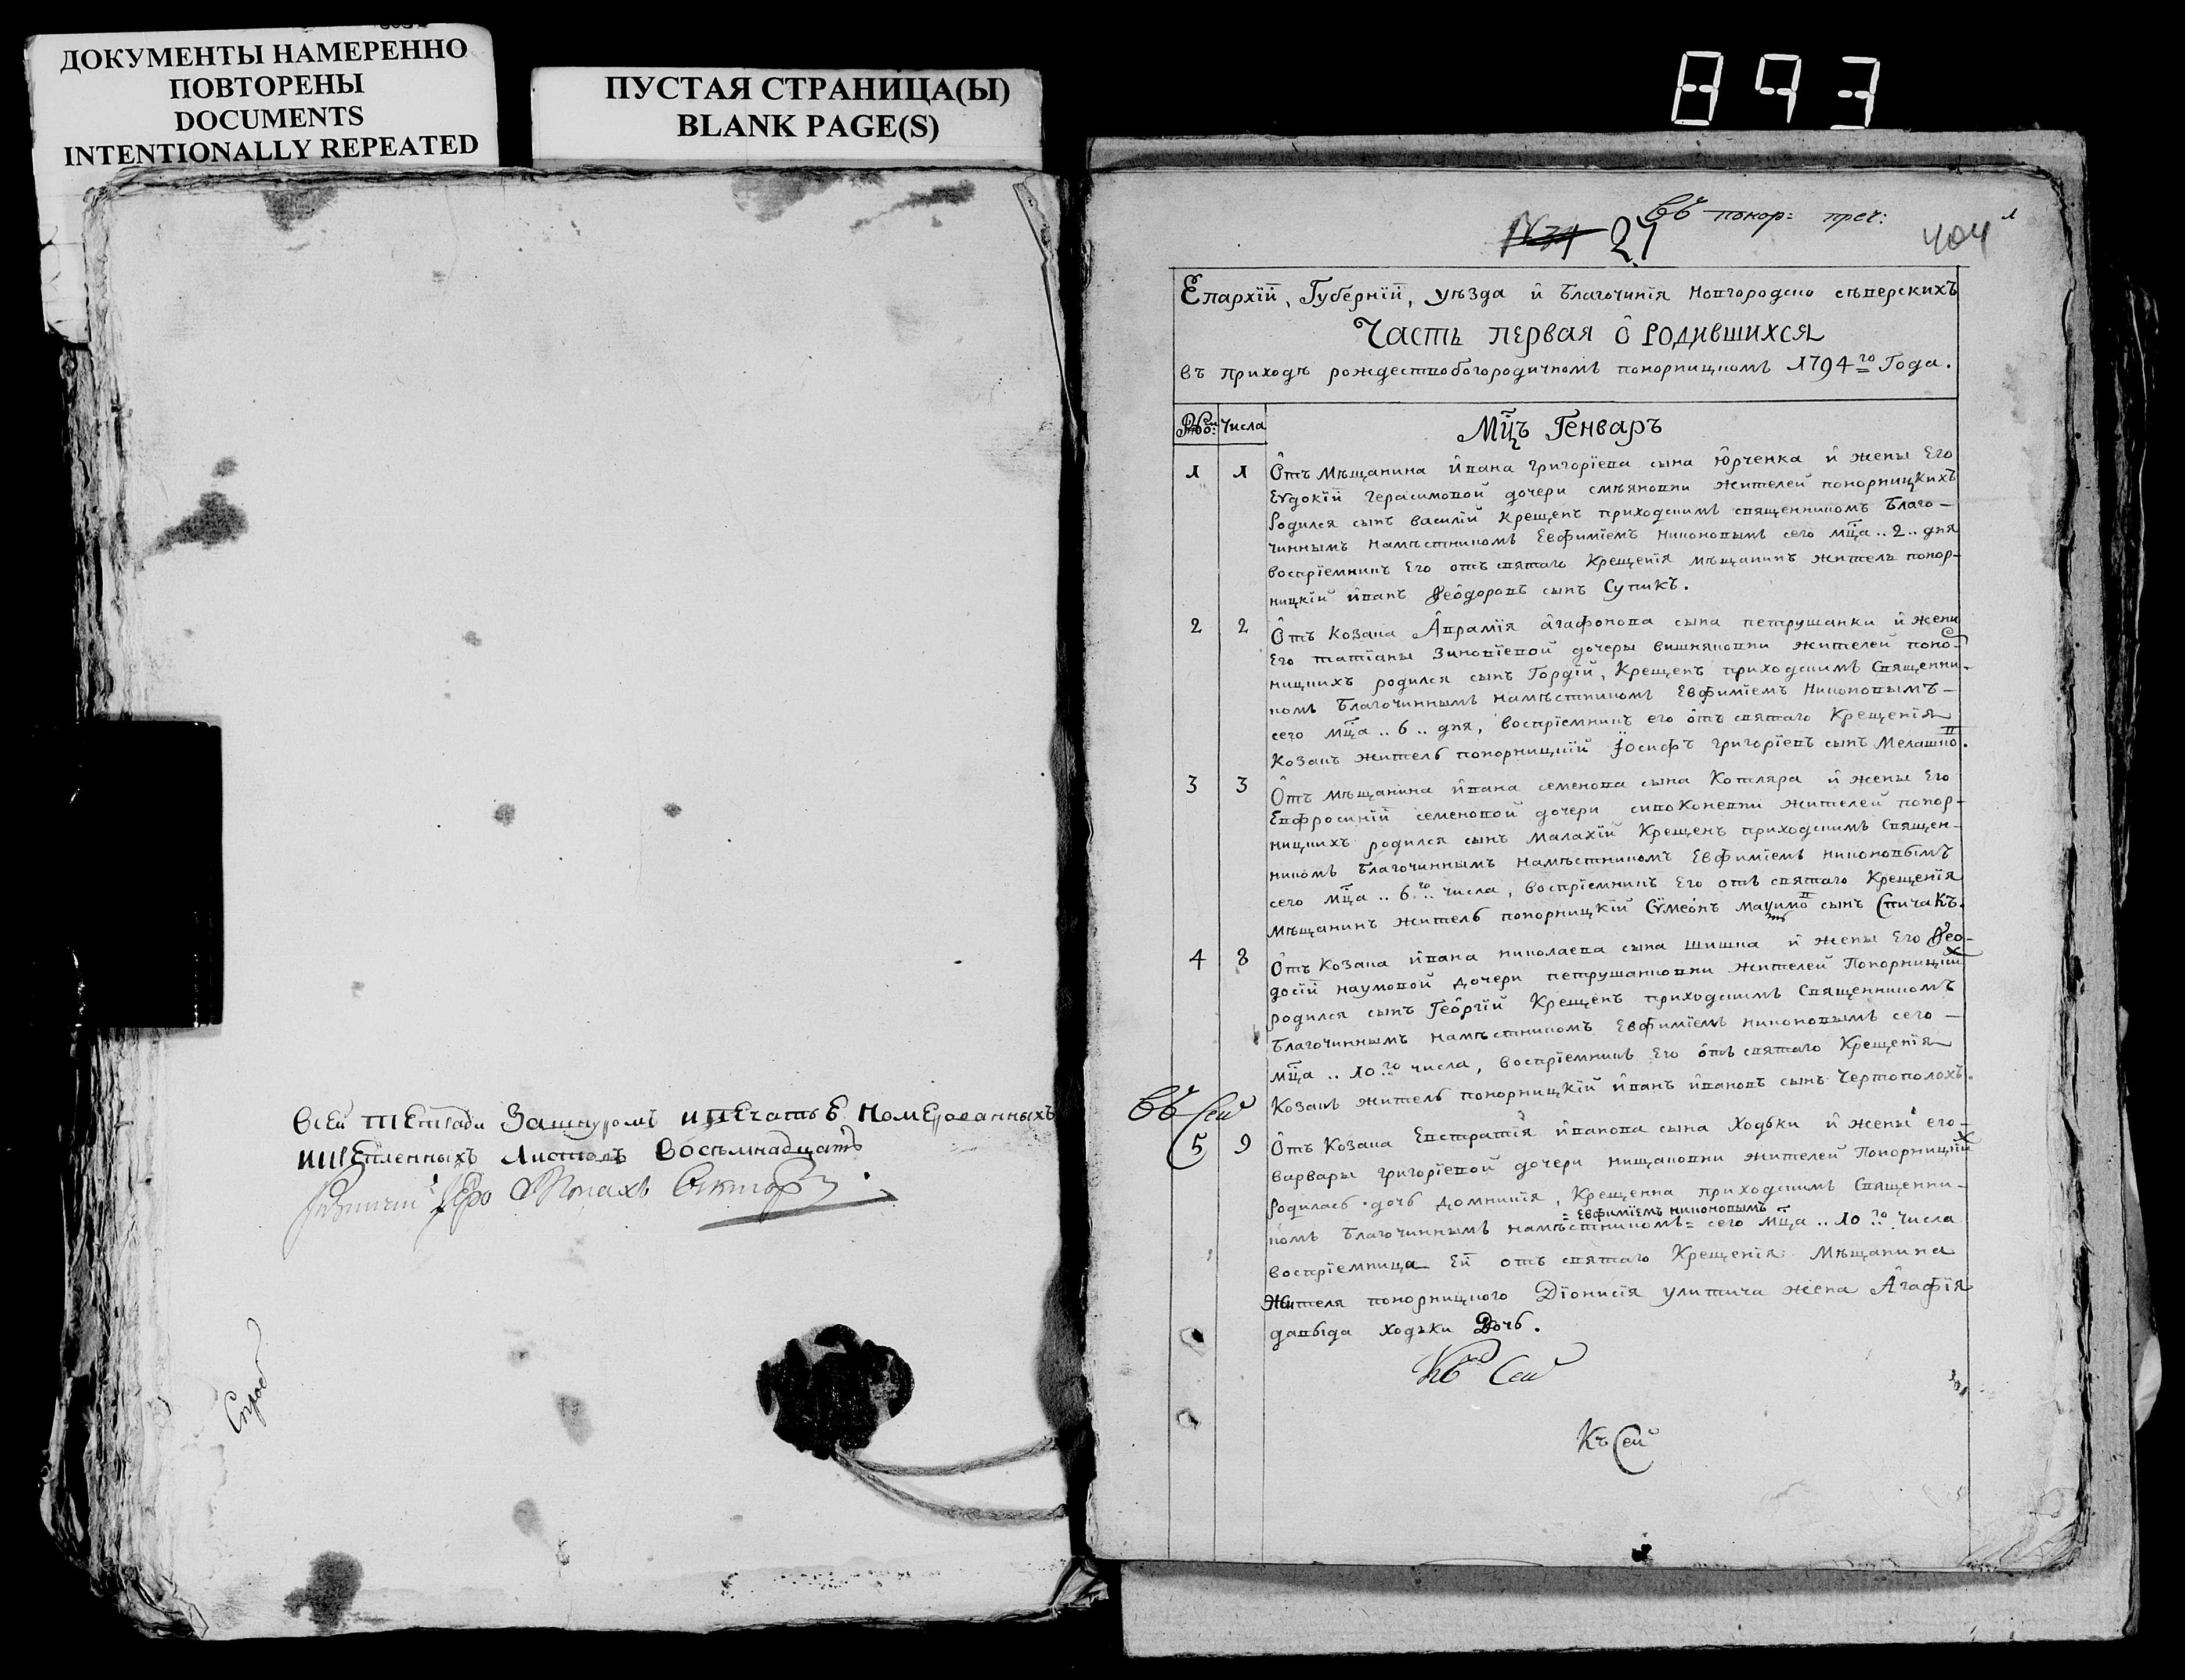 ДОКУМЕНТЫ НАМЕРЕННО
ПОВТОРЕНЫ
DOCUMENTS
INTENTIONALLY REPEATED
ПУСТАЯ СТРАНИЦА(Ы)
BLANK PAGE(S)
893
Въ сей тетради зашнуромъ и печатью номерованныхъ
листовъ восемнадцать
Въ понор: преч:
№ 31 27
404
Епархїй, Губернїй, уѣзда и благочинїя Новгородско сѣверскихъ
Часть первая о родившихся
въ приходѣ рождествобогородичномъ понорницкомъ 1794го Года.
Числа
Мцъ Генваръ
1 1 Отъ мѣщанина ивана григорїева сына Юрченка и жены Его
Еѵдокїй герасимовой дочери смѣяновни жителей понорницкихъ
родился сынъ василїй крещенъ приходскимъ священникомъ благо-
чиннымъ намѣстникомъ Евфимїемъ никоновымъ сего мца .. 2 .. дня
воспрїемникъ Его отъ святаго крещенїя мѣщанинъ житель понор-
ницкїй иванъ Ѳеодоровъ сынъ Супикъ.
2 2 Отъ козака Аврамїя агафонова сына петрушанки и жени
Его татїаны зиновїевой дочеры вишняковни жителей поно-
ницкихъ родился сынъ Гордїй, крещенъ приходскимъ священни-
комъ благочиннымъ намѣстникомъ Евфимїемъ никоновымъ-
сего мца .. 6 .. дня, воспрїемникъ его отъ святаго крещенїя
козакъ житель понорницкїй Іосифъ григорїевъ сынъ Мелашко.
3 3 Отъ мѣщанина ивана семенова сына Котляра и жены Его
Евфросинїй семеновой дочери сивоконевни жителей понор-
ницкихъ родился сынъ малахїй крещенъ приходскимъ священ-
никомъ благочиннымъ намѣстникомъ Евфимїемъ никоновымъ
сего мца .. 6го.. числа, воспрїемникъ Его отъ святаго крещенїя
мѣщанинъ житель понорницкїй Сѵмеонъ сынъ Спичакъ.
4 8 Отъ козака ивана николаева сына шишка и жены Его Ѳео-
досїй наумовой дочери петрушанковни жителей Понорницкїй
родился сынъ Георгїй крещенъ приходскимъ священникомъ
благочиннымъ намѣстникомъ Евфимїемъ никоновымъ сего-
мца .. 10го числа, воспрїемникъ Его отъ святаго крещенїя
козакъ житель понорницкїй иванъ ивановъ сынъ Чертополохъ.
Въ Сей
5 9 Отъ козака Евстратїя иванова сына Ходьки и жены его-
варвары григорїевой дочери нищаковни жителей Понорницкїй
родилась дочь домникїя, крещенна приходскимъ священни-
= Евфимїемъ никоновымъ
комъ благочиннымъ намѣстникомъ= сего мца .. 10го числа
воспрїемница Ей отъ святаго крещенїя мѣщанина
жителя понорницкого Дїонисїя улитича жена Агафїя
давыда ходьки Дочь.
Къ Сей